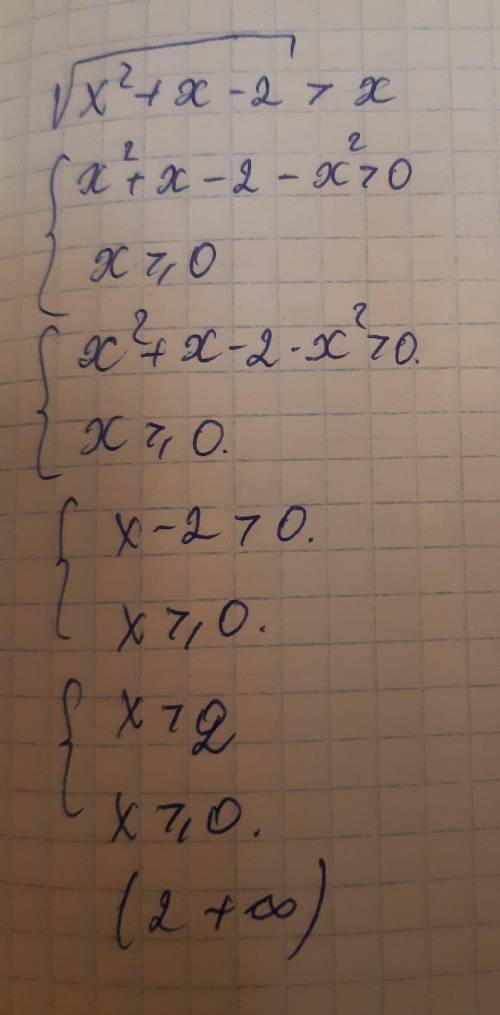 √(x²+x-2) > x
{ x²+x-2-x²>0
x ≥ 0
{ x²+x-2-x²>0.
x ≥ 0.
{ x-2>0.
x ≥ 0.
{ x>2
x ≥ 0.
(2 +∞)